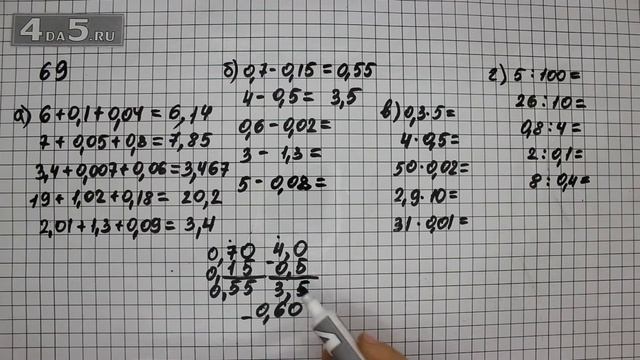 4DA5.RU
69
а) 6 + 0,1 + 0,04 = 6,14
7 + 0,05 + 0,8 = 7,85
3,4 + 0,007 + 0,06 = 3,467
19 + 1,02 + 0,18 = 20,2
2,01 + 1,3 + 0,09 = 3,4
б) 0,7 - 0,15 = 0,55
4 - 0,5 = 3,5
0,6 - 0,02 =
3 - 1,3 =
5 - 0,02 =
в) 0,3 · 5 =
4 · 0,5 =
50 · 0,02 =
2,9 · 10 =
31 · 0,01 =
г) 5 : 100 =
26 : 10 =
0,8 : 4 =
2 : 0,1 =
8 : 0,4 =
0,70
0,15
0,55
- 4,0
0,5
3,5
- 0,60